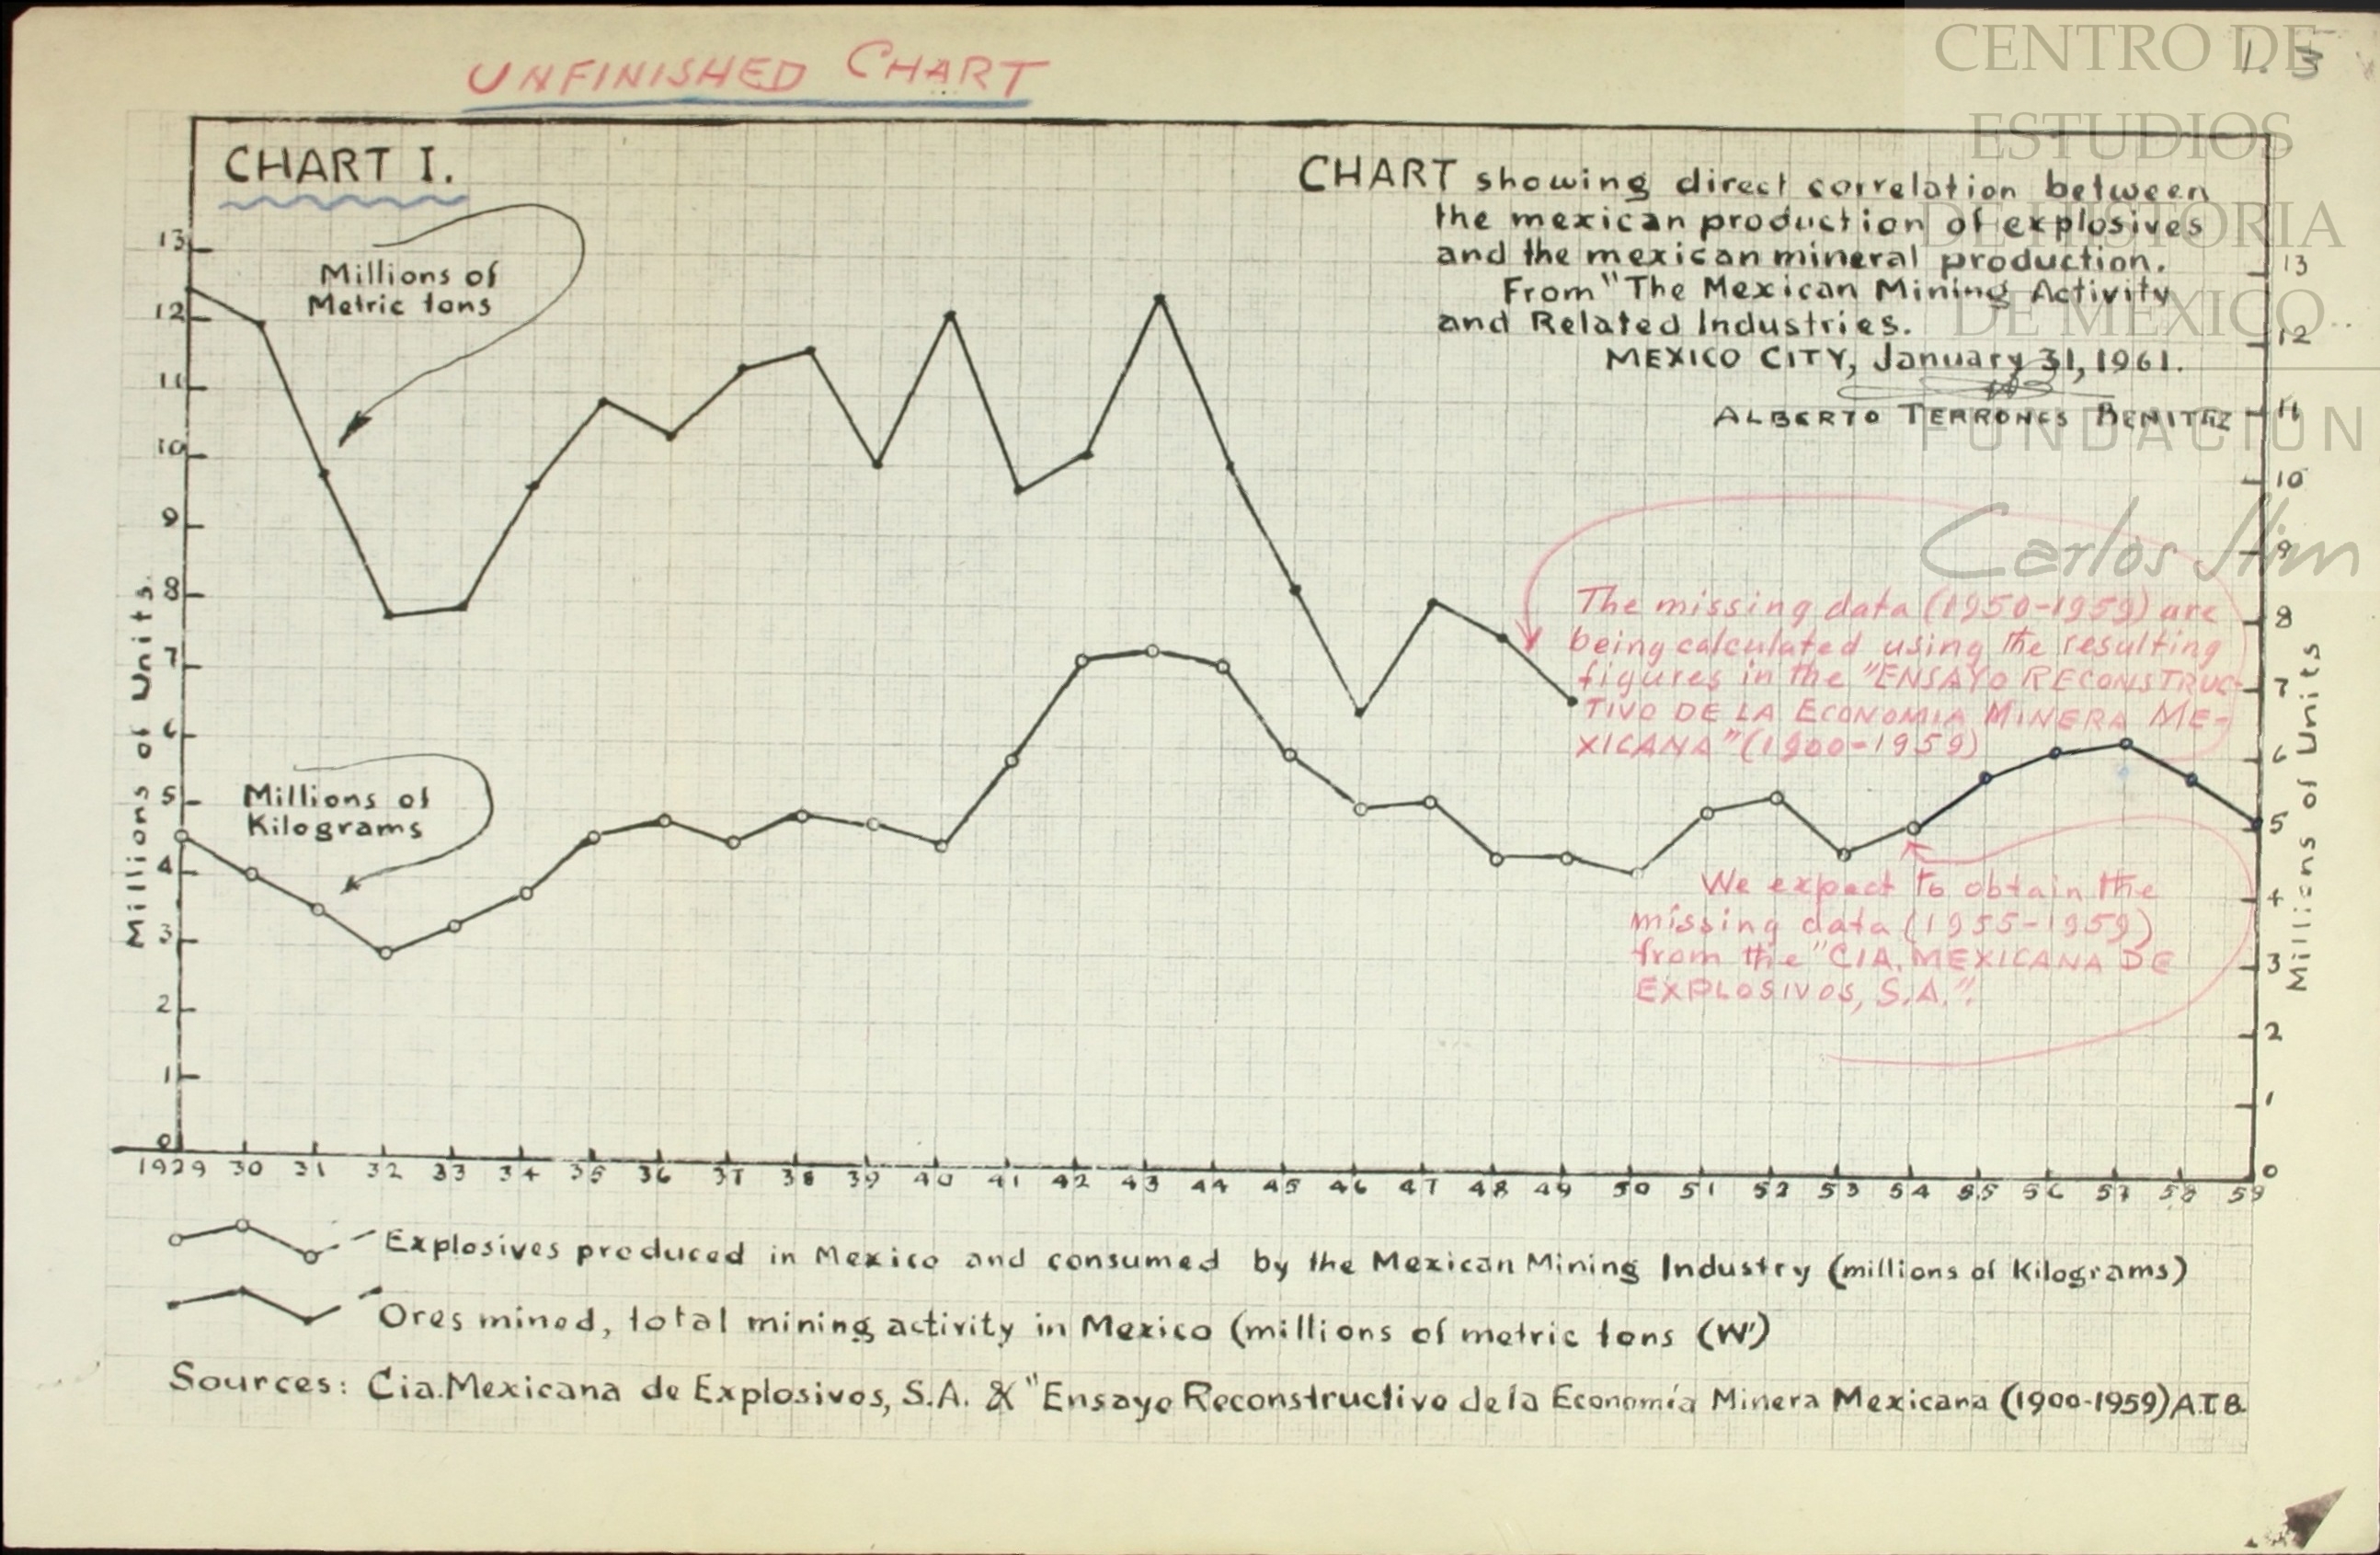 UNFINISHED CHART
1. 3
CENTRO DE
ESTUDIOS
DE HISTORIA
DE MÉXICO
FUNDACIÓN
Carlos Slim
CHART I.
CHART showing direct correlation between
the mexican production of explosives
and the mexican mineral production.
From "The Mexican Mining Activity
and Related Industries.
MEXICO CITY, January 31, 1961.
ALBERTO TERRONES BENITEZ
Millions of
Metric tons
The missing data (1950-1959) are
being calculated using the resulting
figures in the "ENSAYO RECONSTRUC-
TIVO DE LA ECONOMIA MINERA ME-
XICANA" (1900-1959)
Millions of
Kilograms
We expect to obtain the
missing data (1955-1959)
from the "CIA. MEXICANA DE
EXPLOSIVOS, S.A.".
Millions of Units
13
12
11
10
9
8
7
6
5
4
3
2
1
0
13
12
11
10
9
8
7
6
5
4
3
2
1
0
Millions of Units
1929 30 31 32 33 34 35 36 37 38 39 40 41 42 43 44 45 46 47 48 49 50 51 52 53 54 55 56 57 58 59
Explosives produced in Mexico and consumed by the Mexican Mining Industry (millions of Kilograms)
Ores mined, total mining activity in Mexico (millions of metric tons (W)
Sources: Cia. Mexicana de Explosivos, S.A. & "Ensayo Reconstructivo de la Economía Minera Mexicana (1900-1959) A.T.B.